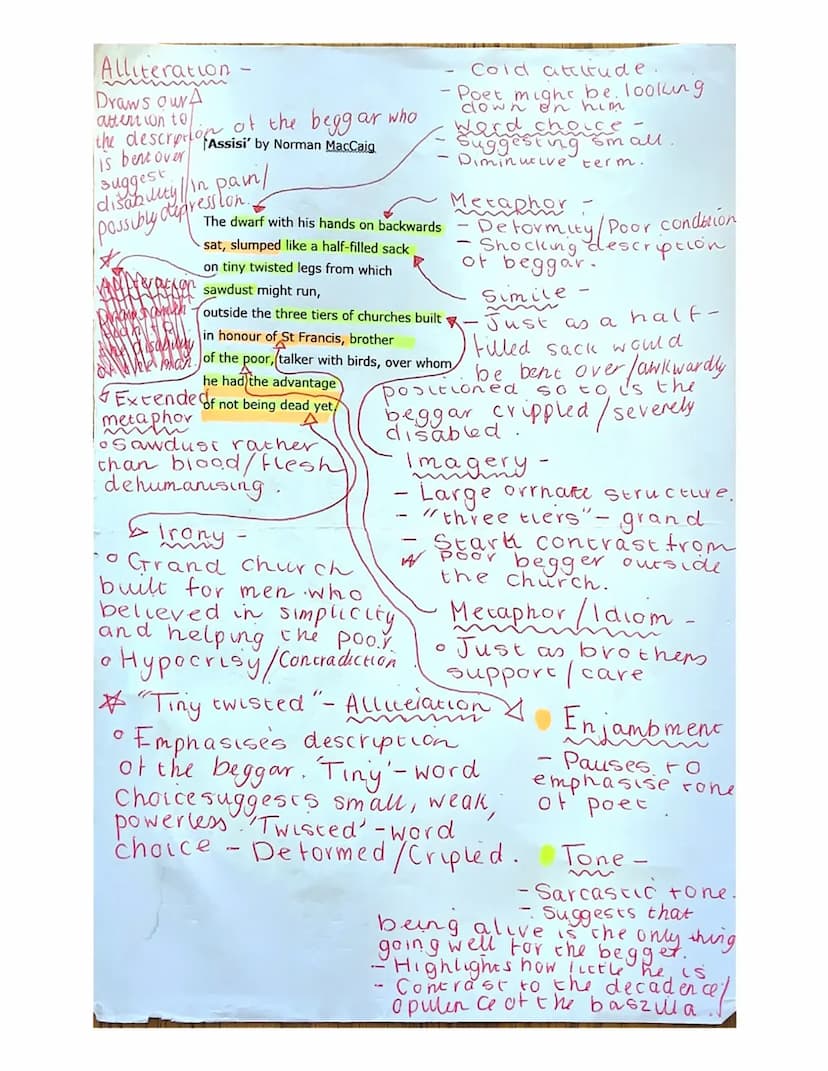 Alliteration -
Draws our
attention to
the description of the beggar who
is bent over
suggest
disability/In pain/
possibly depression.
- Cold attitude.
- Poet might be looking
down on him
Word choice -
- Suggesting small.
- Diminutive term.
'Assisi' by Norman MacCaig
The dwarf with his hands on backwards
sat, slumped like a half-filled sack
on tiny twisted legs from which
sawdust might run,
outside the three tiers of churches built
in honour of St Francis, brother
of the poor, talker with birds, over whom
he had the advantage
of not being dead yet.
Metaphor -
- Deformity/Poor condition
- Shocking description
of beggar.
Simile -
- Just as a half-
filled sack would
be bent over/awkwardly
positioned so to is the
beggar crippled/severely
disabled.
Extended
metaphor
Sawdust rather
than blood/flesh
dehumanising.
Imagery -
- Large orrnate structure.
- "three tiers" - grand
- Stark contrast from
poor begger outside
the church.
Irony -
Grand church
built for men who
believed in simplicity
and helping the poor
Hypocrisy/Contradiction
Metaphor/Idiom -
Just as brothers
support/care
"Tiny twisted" - Alliteration
Emphasises description
of the beggar. 'Tiny' - word
Choice suggests small, weak,
powerless. 'Twisted' - word
choice - Deformed/Cripled.
Enjambment
- Pauses to
emphasise tone
of poet.
Tone -
- Sarcastic tone.
- Suggests that
being alive is the only thing
going well for the begger.
- Highlights how little he is
- Contrast to the decadence/
opulence of the baszilla.